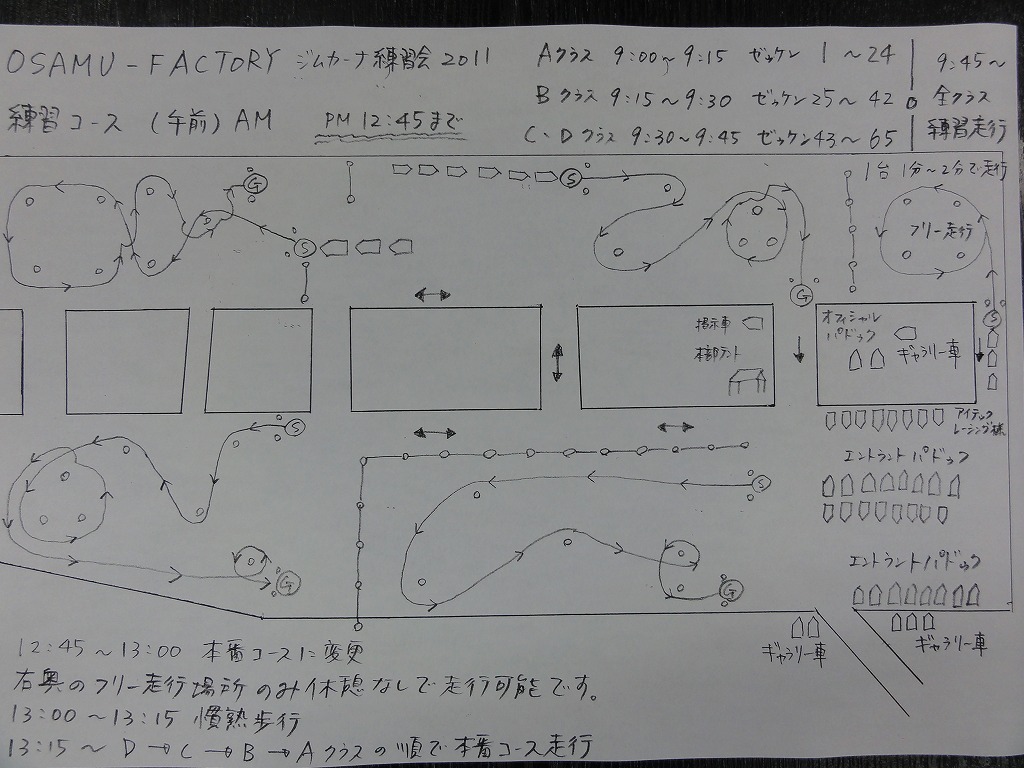 OSAMU-FACTORY ジムカーナ練習会 2011
練習コース (午前) AM PM 12:45まで
Aクラス 9:00~9:15 ゼッケン 1~24
Bクラス 9:15~9:30 ゼッケン25~42
C・Dクラス 9:30~9:45 ゼッケン43~65
9:45~
全クラス
練習走行
1台 1分~2分で走行
フリー走行
G
S
S
G
S
掲示車
本部テント
オフィシャル
パドック
ギャラリー車
アイテック
レーシング様
エントラントパドック
S
G
S
G
エントラントパドック
ギャラリー車
ギャラリー車
12:45~13:00 本番コースに変更
右奥のフリー走行場所のみ休憩なしで走行可能です。
13:00~13:15 慣熟歩行
13:15~ D→C→B→Aクラスの順で本番コース走行